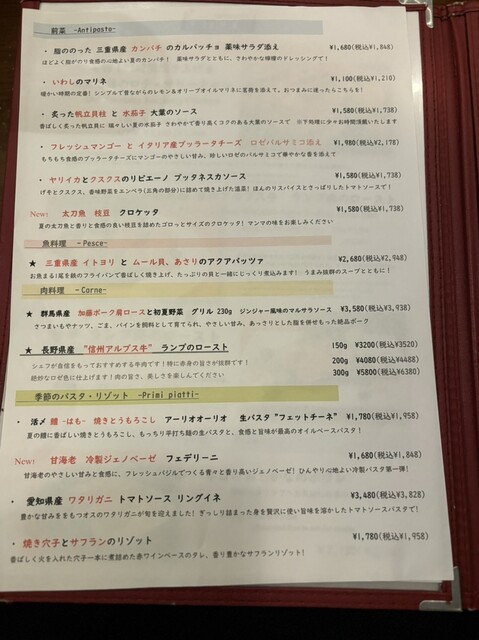 前菜 -Antipasto-
・脂ののった 三重県産 カンパチ のカルパッチョ 薬味サラダ添え ¥1,680(税込¥1,848)
ほどよく脂がのり食感の心地よい夏のカンパチ! 薬味サラダとともに、さわやかな檸檬のドレッシングで!
・いわしのマリネ ¥1,100(税込¥1,210)
暖かい時期の定番! シンプルで昔ながらのレモン&オリーブオイルマリネに茗荷を添えて、おつまみに迷ったらこちらを!
・炙った帆立貝柱 と 水茄子 大葉のソース ¥1,580(税込¥1,738)
香ばしく炙った帆立貝柱に 瑞々しい夏の水茄子 さわやかで香り高くコクのある大葉のソースで ※下処理に少々お時間頂戴いたします
・フレッシュマンゴー と イタリア産ブッラータチーズ ロゼバルサミコ添え ¥1,980(税込¥2,178)
もちもち食感のブッラータチーズにマンゴーのやさしい甘み、珍しいロゼのバルサミコで華やかな香を添えて
・ヤリイカとクスクスのリピエーノ プッタネスカソース ¥1,580(税込¥1,738)
げそとクスクス、香味野菜をエンペラ(三角の部分)に詰めて焼き上げた温菜! ほんのりスパイスとさっぱりしたトマトソースで!
New! 太刀魚 枝豆 クロケッタ ¥1,580(税込¥1,738)
夏の太刀魚と香りと食感の良い枝豆を詰めたゴロっとサイズのクロケッタ! マンマの味をお楽しみください
魚料理 -Pesce-
★ 三重県産 イトヨリ と ムール貝、あさりのアクアパッツァ ¥2,680(税込¥2,948)
お魚まる1尾を鉄のフライパンで香ばしく焼き上げ、たっぷりの貝と一緒にじっくり煮込みます! うまみ抜群のスープとともに!
肉料理 -Carne-
★ 群馬県産 加藤ポーク肩ロースと初夏野菜 グリル 230g ジンジャー風味のマルサラソース ¥3,580(税込¥3,938)
さつまいもやナッツ、ごま、パインを飼料として育てられ、やさしい甘み、あっさりとした脂を併せもった絶品ポーク
★ 長野県産 "信州アルプス牛" ランプのロースト 150g ¥3200(税込¥3520)
シェフが自信をもっておすすめする牛肉です!特に赤身の旨さが抜群です! 200g ¥4080(税込¥4488)
絶妙なロゼ色に仕上げます!肉の旨さ、美しさを楽しんでください 300g ¥5800(税込¥6380)
季節のパスタ・リゾット -Primi piatti-
・活〆 鱧 -はも- 焼きとうもろこし アーリオオーリオ 生パスタ "フェットチーネ" ¥1,780(税込¥1,958)
夏の鱧に香ばしい焼きとうもろこし、もっちり平打ち麺の生パスタと、食感と旨味が最高のオイルベースパスタ!
New! 甘海老 冷製ジェノベーゼ フェデリーニ ¥1,680(税込¥1,848)
甘海老のやさしい甘みと食感に、フレッシュバジルでつくる青々と香り高いジェノベーゼ! ひんやり心地よい冷製パスタ第一弾!
・愛知県産 ワタリガニ トマトソース リングイネ ¥3,480(税込¥3,828)
豊かな甘みををもつオスのワタリガニが旬を迎えました! ぎっしり詰まった身を贅沢に使い旨味を溶かしたトマトソースパスタで!
・焼き穴子とサフランのリゾット ¥1,780(税込¥1,958)
香ばしく火を入れた穴子一本に煮詰めた赤ワインベースのタレ、香り豊かなサフランリゾット!